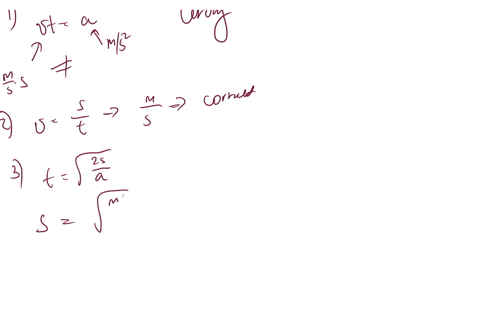 1) vt = a wrong
m/s²
m/s s ≠
2) v = s/t → m/s → correct
3) t = √(2s/a)
s = √(m